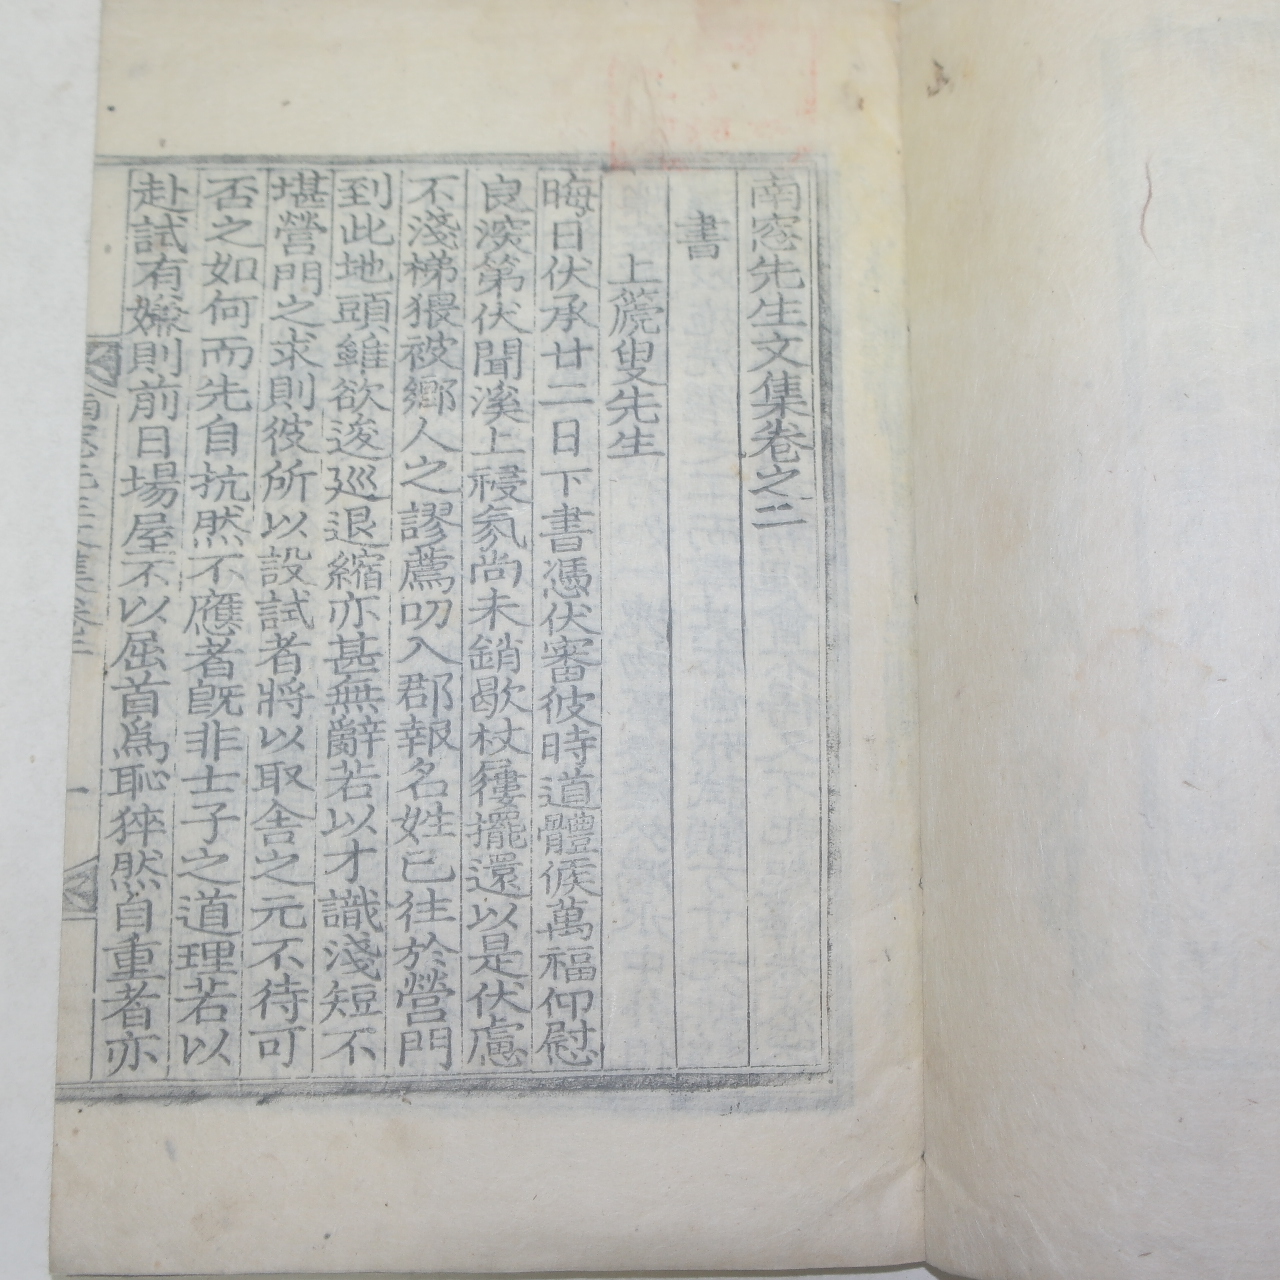 南窓先生文集卷之二
書
上簏叟先生
晦日伏承廿二日下書憑伏審彼時道體候萬福仰慰
良深第伏聞溪上祲氛尙未銷歇杖屨擺還以是伏慮
不淺梯猥被鄕人之謬薦叨入郡報名姓已往於營門
到此地頭雖欲逡巡退縮亦甚無辭若以才識淺短不
堪營門之求則彼所以設試者將以取舍之元不待可
否之如何而先自抗然不應者旣非士子之道理若以
赴試有嫌則前日場屋不以屈首爲恥猝然自重者亦
南窓先生文集卷二
一